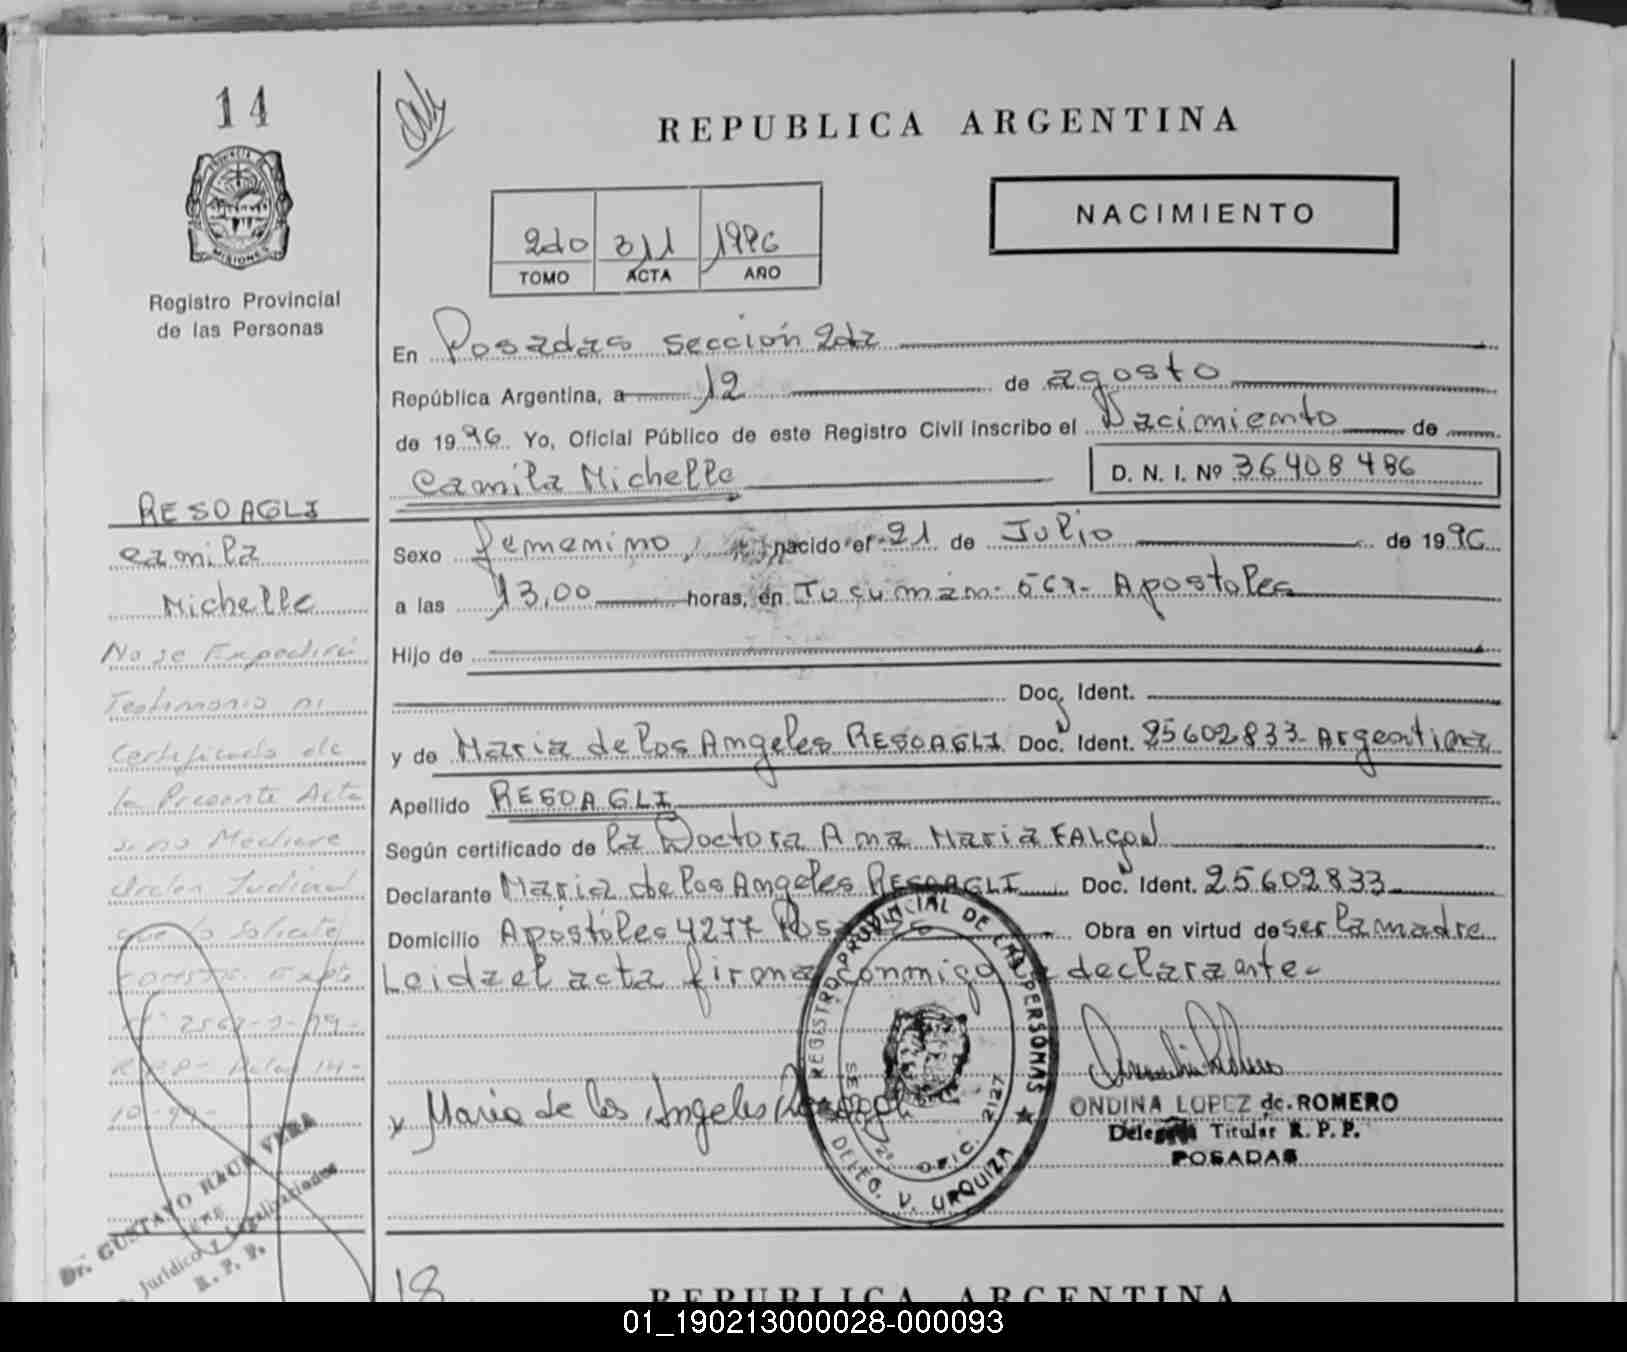 14
PROVINCIA DE
MISIONES
Registro Provincial
de las Personas
REPUBLICA ARGENTINA
NACIMIENTO
2do 311 1996
TOMO ACTA AÑO
En Posadas sección 2da
República Argentina, a 12 de agosto
de 1996 Yo, Oficial Público de este Registro Civil inscribo el Nacimiento de
Camila Michelle D. N. I. Nº 36408486
Sexo femenino, nacido el 21 de Julio de 1996
a las 13,00 horas, en Tucumán 567- Apostoles
Hijo de
Doc. Ident.
y de Maria de los Angeles RESOAGLI Doc. Ident. 25602833- Argentina
Apellido RESOAGLI
Según certificado de la Doctora Ana Maria FALCON
Declarante Maria de los Angeles RESOAGLI Doc. Ident. 25602833
Domicilio Apóstóles 4277 Posadas Obra en virtud de ser la madre
Leida el acta firma conmigo la declarante-
Maria de los Angeles Resoagli
REGISTRO PROVINCIAL DE LAS PERSONAS
OFIC. 2127
DELEG. V. URQUIZA
ONDINA LOPEZ de ROMERO
Delegada Titular R. P. P.
POSADAS
RESOAGLI
Camila
Michelle
No se Expedirá
Testimonio ni
Certificado de
la Presente Acta
si no Mediare
Orden Judicial
que lo Solicite
Expte
10-99-
Dr. GUSTAVO RAUL VERA
JEFE
Jurídico y Legalizaciones
R. P. P.
18
REPUBLICA ARGENTINA
01_190213000028-000093